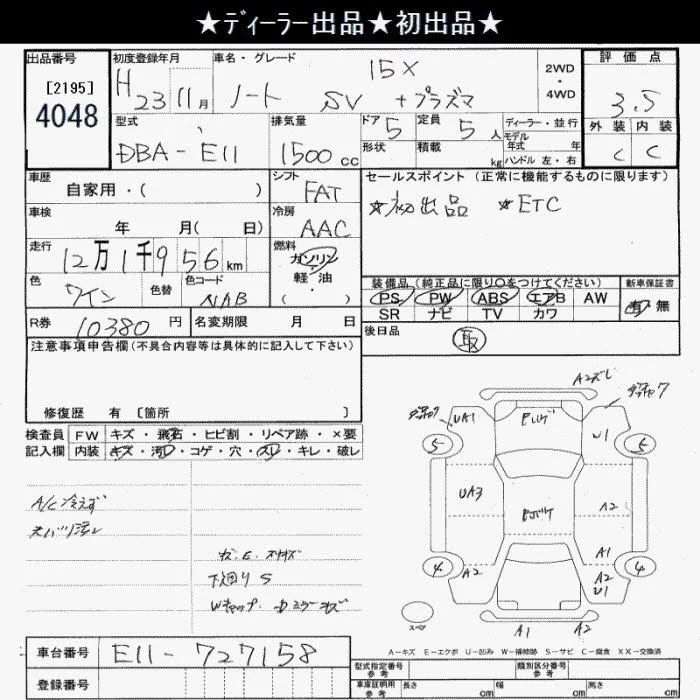 ★ディーラー出品★初出品★
出品番号
[2195]
4048
初度登録年月
H23 11月
車名・グレード
ノート 15X SV +プラズマ
2WD・4WD
評価点
3.5
外装 内装
C C
型式
DBA-E11
排気量
1500cc
ドア 5
形状
定員 5人
積載 kg
ディーラー・並行
モデル年式 年
ハンドル 左・右
車歴
自家用・( )
シフト
FAT
セールスポイント (正常に機能するものに限ります)
☆初出品 ☆ETC
車検
年 月( 日)
冷房
AAC
走行
12万1千956km
燃料
ガソリン・軽油・( )
色
ワイン
色替
色コード
NAB
装備品(純正品に限り○をつけてください)
PS PW ABS エアB AW
SR ナビ TV カワ
新車保証書
有・無
R券 10380円
名変期限 月 日
後日品
取
注意事項申告欄(不具合内容等は具体的に記入して下さい)
修復歴 有 [箇所 ]
検査員記入欄
FW キズ・飛石・ヒビ割・リペア跡・×要
内装 キズ・汚レ・コゲ・穴・スレ・キレ・破レ
A/C冷えず
下廻りS
A2ズレ
UA1
U1
5
5
UA3
A2
A1
4
A2
A2
U1
4
スペア
A1
A2
A-キズ E-エクボ U-凹み W-補修跡 S-サビ C-腐食 XX-交換済
車台番号
E11-727158
登録番号
型式指定番号
参考
類別区分番号
参考
車庫証明用
参考
長さ cm
幅 cm
高さ cm